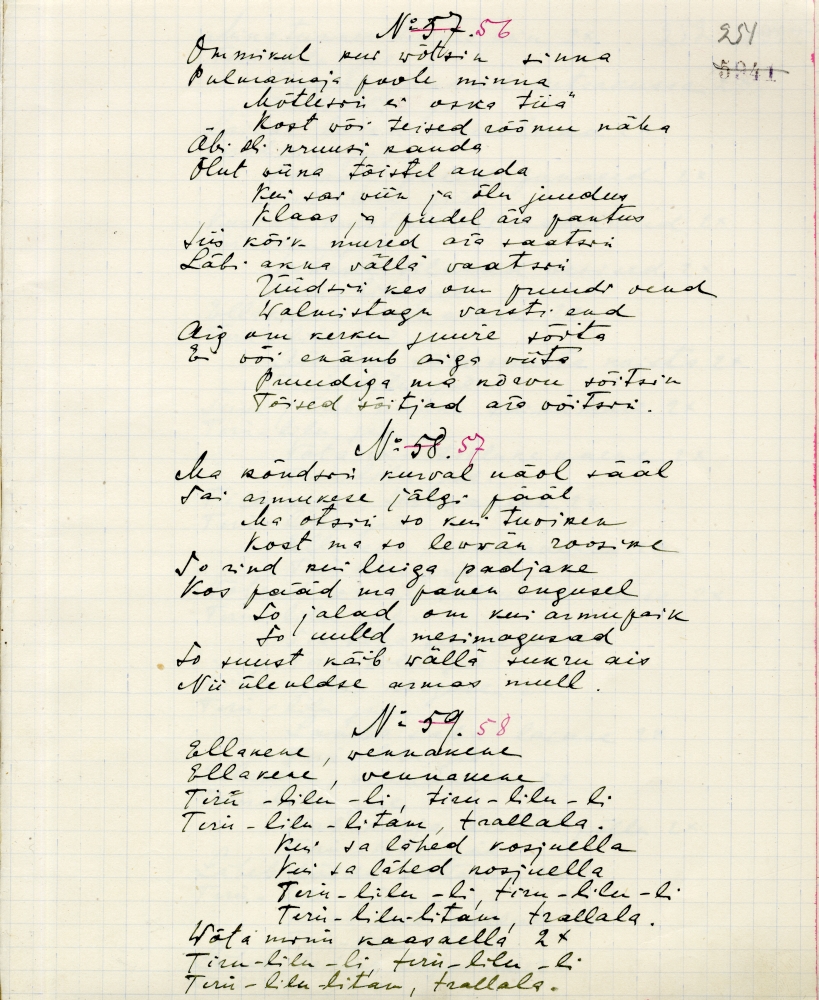 № 57. 56
251
5941
Ommikul kui wõtsin sinna
Pulmamaja poole minna
Mõtlesin ei oska tiiä
Kost wõi teised rõõmu näha
Äbi oli kruusi kanda
Õlut wiina tõistel anda
Kui sai viin ja õlu juudus
Klaas ja pudel ära pantus
Siis kõik mured ära saatsin
Läbi akna vällä vaatsin
Üüdsin kes om pruudi vend
Walmistagu varsti end
Aig om kerku juure sõita
Ei või enämb aiga viita
Pruudiga ma kõrwu sõitsin
Tõised sõitjad ära võitsin.
№ 58. 57
Ma kõndsin kurval näol sääl
Sai armukese jälgi pääl
Ma otsin so kui tuviken
Kost ma so lewwän roosike
So rind kui luiga padjake
Kos pääd ma panen engusel
So jalad om kui armupaik
So uuled mesimagusad
So suust käib wällä sukru ais
Nii üleuldse armas mull.
№ 59. 58
Ellakene, wennakene
Ellakene, vennakene
Tirii-lilu-li, tiru-lilu-li
Tirii-lilu-litam, trallala.
Kui sa lähed kosjuella
Kui sa lähed kosjuella
Tirii-lilu-li, tiru-lilu-li
Tirii-lilu-litam, trallala.
Wõta minu kaasaella 2x
Tiru-lilu-li, tirii-lilu-li
Tirii-lilu-litam, trallala.